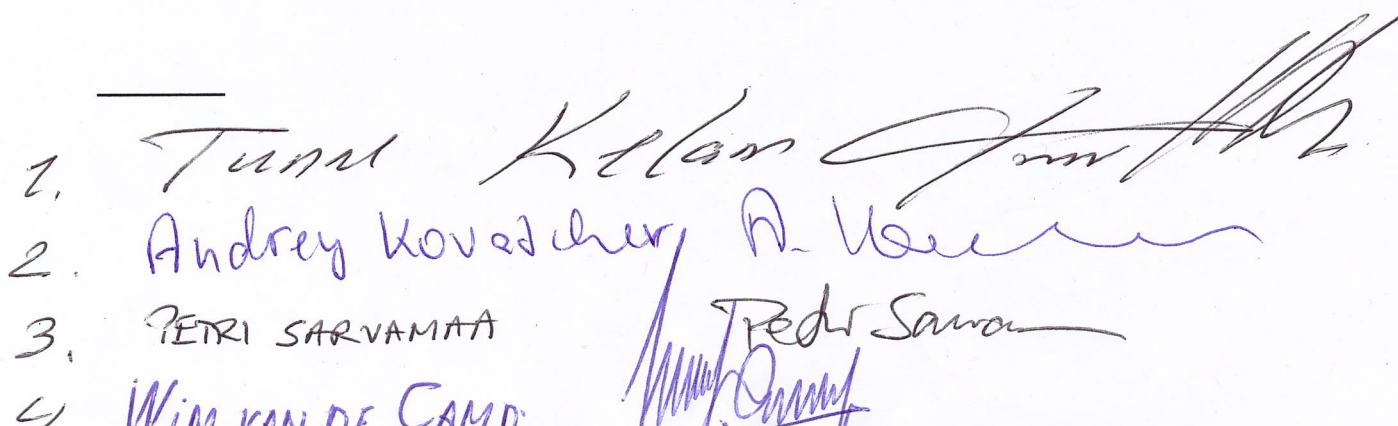 1. Tunne Kelam
2. Andrey Kovatchev, A. Kov
3. PETRI SARVAMAA Petri Sarva
4 WIM VAN DE CAMP